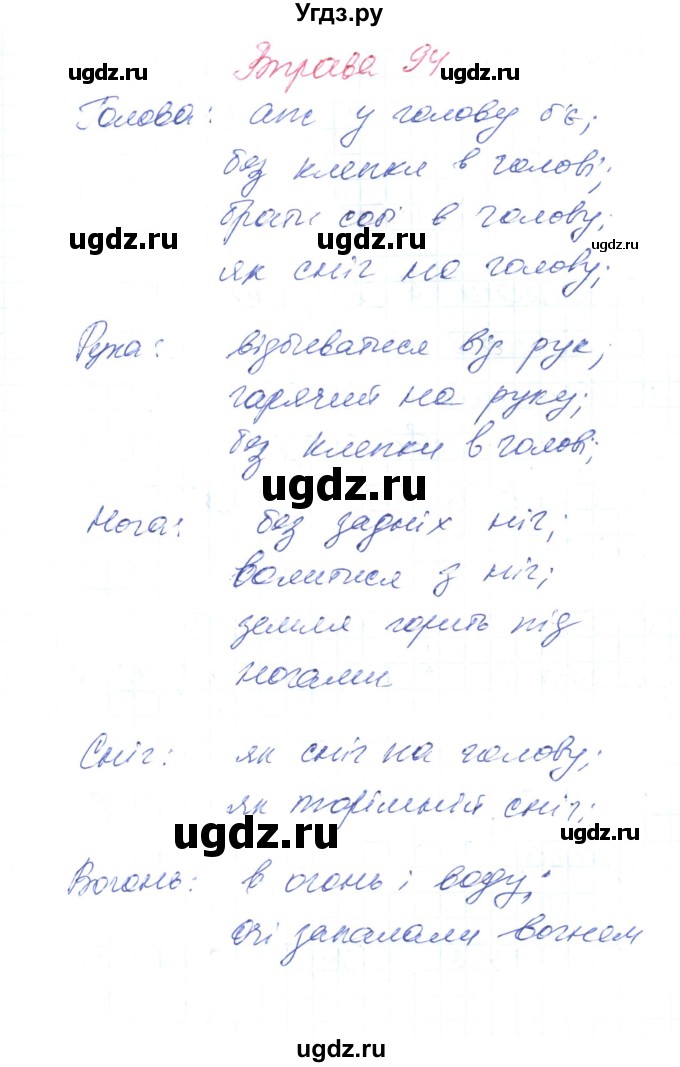 Угдз.ру
Вправа 94
ugdz.ru
Голова: аж у голову б'є;
без клепки в голові;
брати собі в голову;
ugdz.ru
ugdz.ru
як сніг на голову;
Рука: відбиватися від рук;
гарячий на руку;
без клепки в голові;
ugdz.ru
Нога: без задніх ніг;
валитися з ніг;
земля горить під
ногами
Сніг: як сніг на голову;
як торішній сніг;
ugdz.ru
ugdz.ru
Вогонь: в огонь і воду;
очі запалали вогнем
ugdz.ru